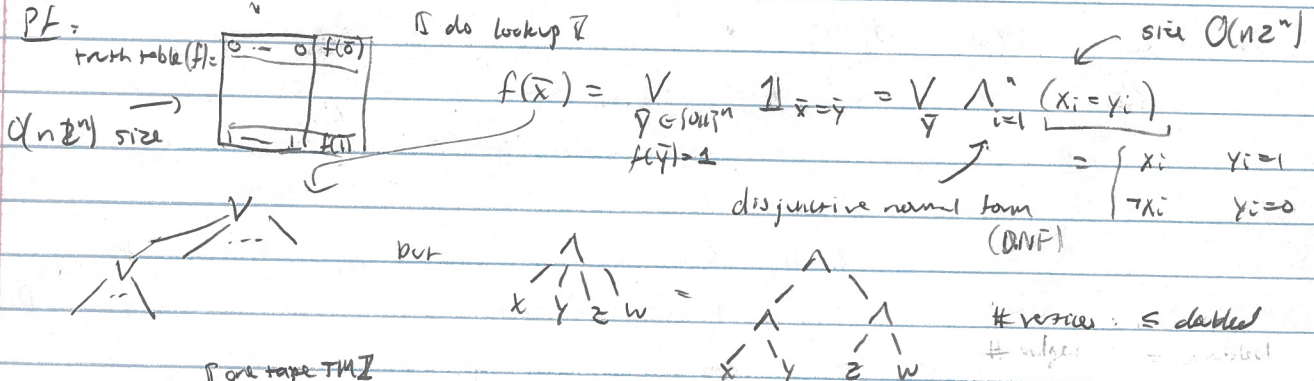 Pf:
truth table(f)= 0 ... 0 f(0̄)
1 — 1 f(1̄)
O(n2ⁿ) size →
⟦ do lookup ⟧
size O(n2ⁿ)
f(x̄) = ⋁_{ȳ∈{0,1}ⁿ, f(ȳ)=1} 𝟙_{x̄=ȳ} = ⋁_ȳ ⋀ⁿ_{i=1} (xᵢ=yᵢ)
= { xᵢ yᵢ=1
¬xᵢ yᵢ=0
disjunctive normal form
(DNF)
∨
...
∨
..
but
∧ = ∧
∧ ∧
x y z w x y z w
# vertices: ≤ doubled
# edges
⟦ one tape TM ⟧